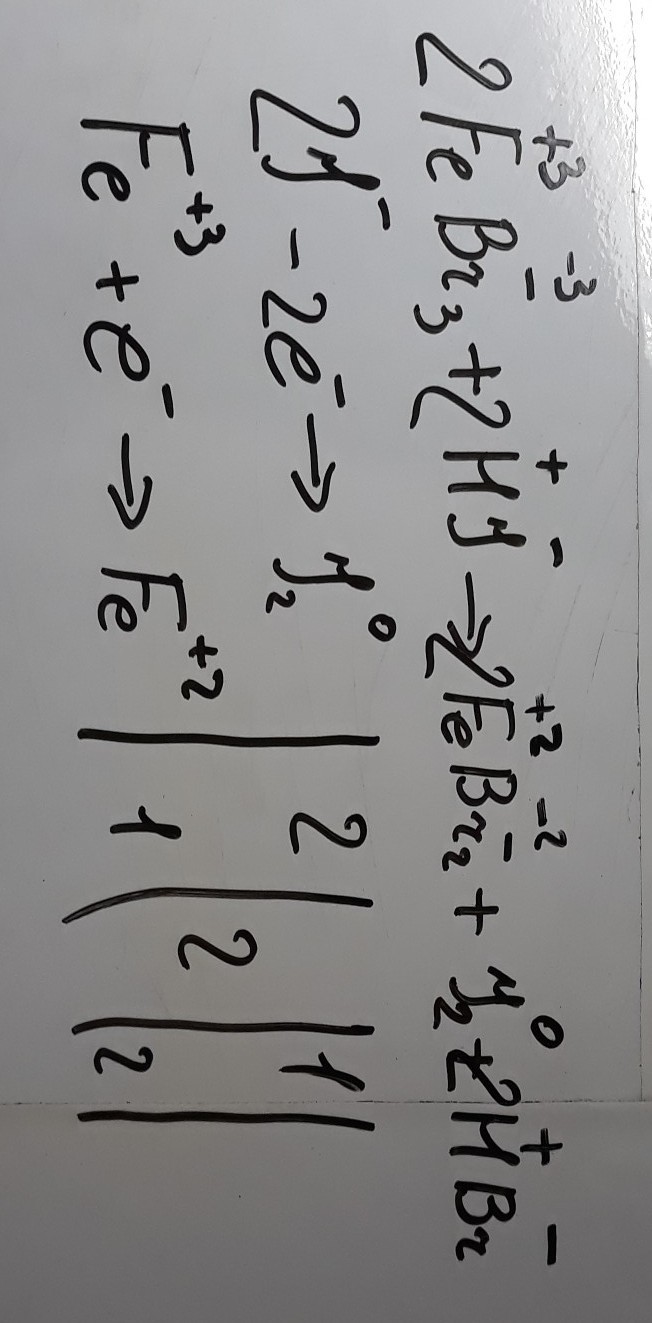 2Fe⁺³Br₃⁻ ⁻³ + 2H⁺J⁻ → 2Fe⁺²Br₂⁻ ⁻² + J₂⁰ + 2H⁺Br⁻
2J⁻ - 2e⁻ → J₂⁰ | 2 | 2 | 1 |
Fe⁺³ + e⁻ → Fe⁺² | 1 | 2 | 2 |